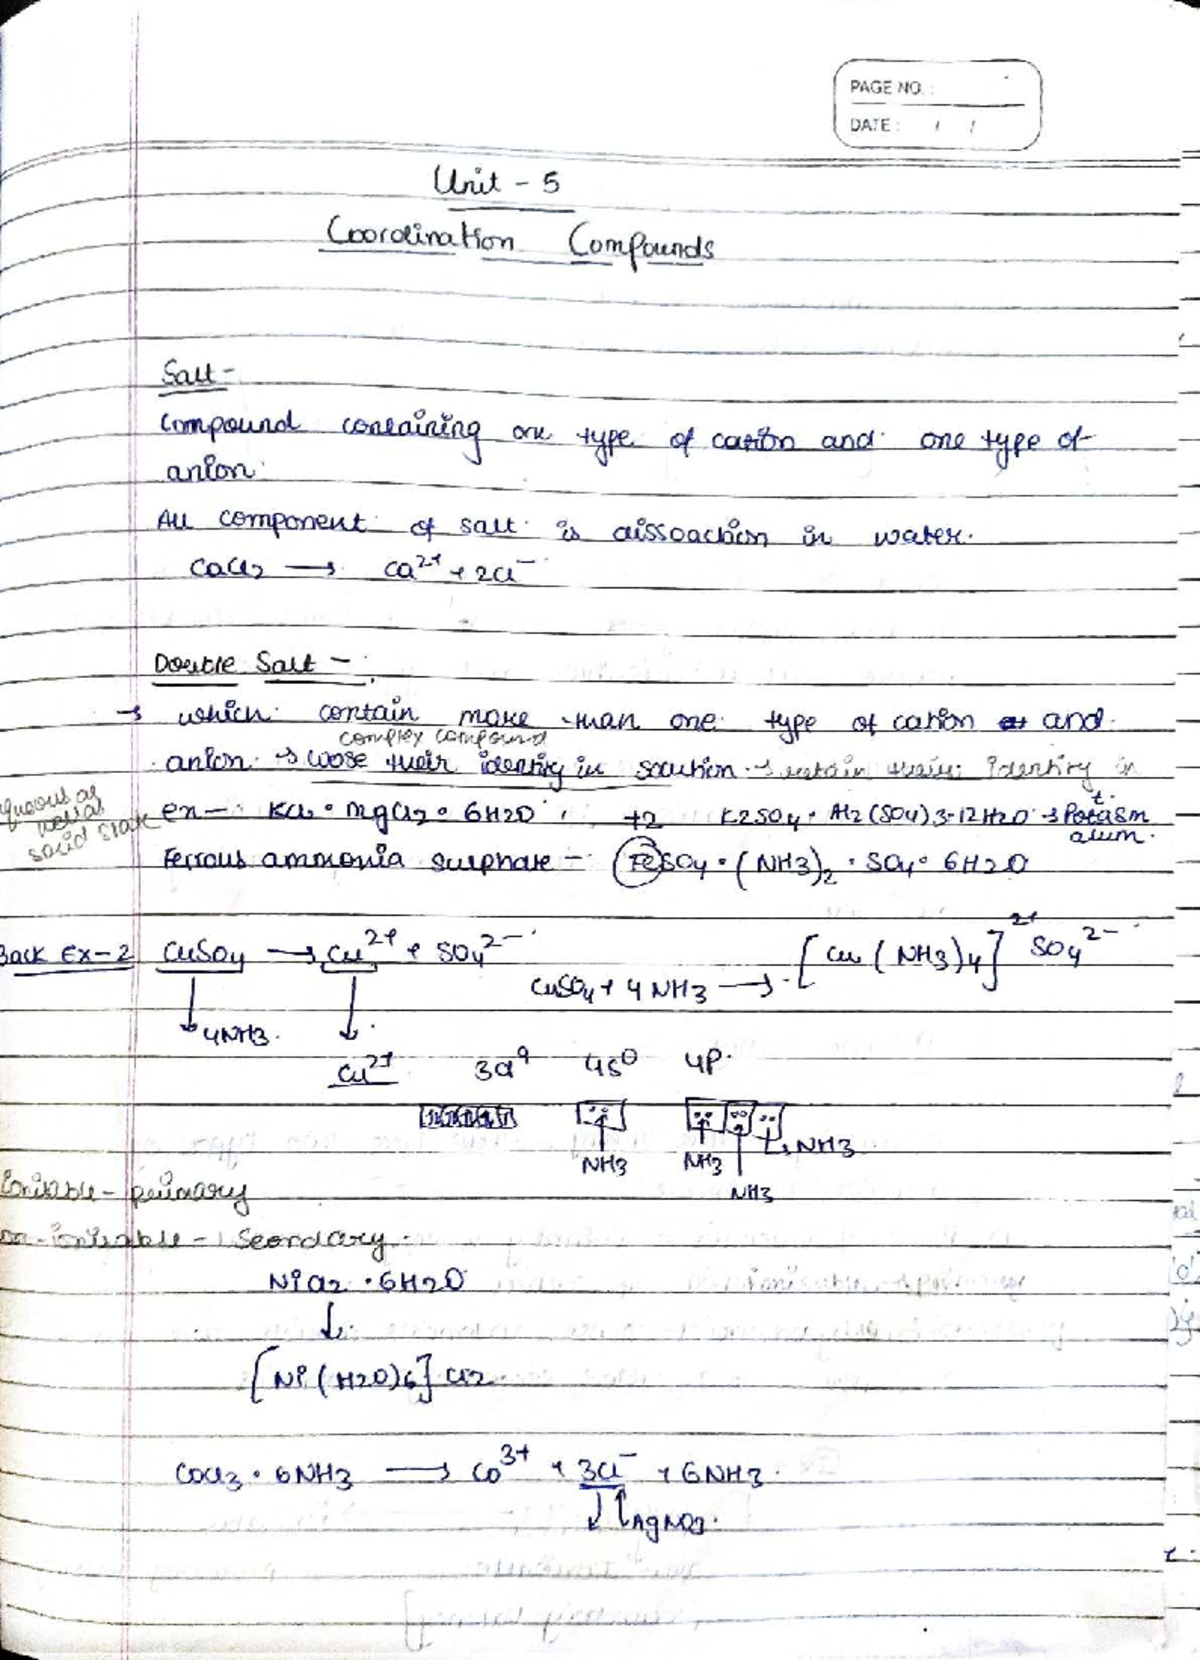 PAGE NO. :
DATE : / /
Unit - 5
Coordination Compounds
Salt -
Compound containing one type of cation and one type of
anion.
All component of salt is dissoaction in water.
CaCl2 → Ca2+ + 2Cl-
Double Salt -
→ which contain more than one type of cation and
complex compound
anion. → loose their identity in solution. → retain their identity in
aqueous as
well as
solid state
ex - KCl · MgCl2 · 6H2O , +2 K2SO4 · Al2(SO4)3·12H2O → Potasm
alum.
Ferrous ammonia sulphate - FeSO4 · (NH3)2 · SO4 · 6H2O
Back Ex-2 CuSO4 → Cu2+ + SO42-
CuSO4 + 4NH3 → [Cu(NH3)4]2+ SO42-
4NH3.
Cu2+ 3d9 4s0 4P
NH3 NH3 NH3
NH3
Ionisable - primary
Non-ionisable - Seondary.
NiCl2 · 6H2O
↓
[Ni(H2O)6]Cl2
CoCl3 · 6NH3 → Co3+ + 3Cl- + 6NH3.
↓ ↑AgNO3.